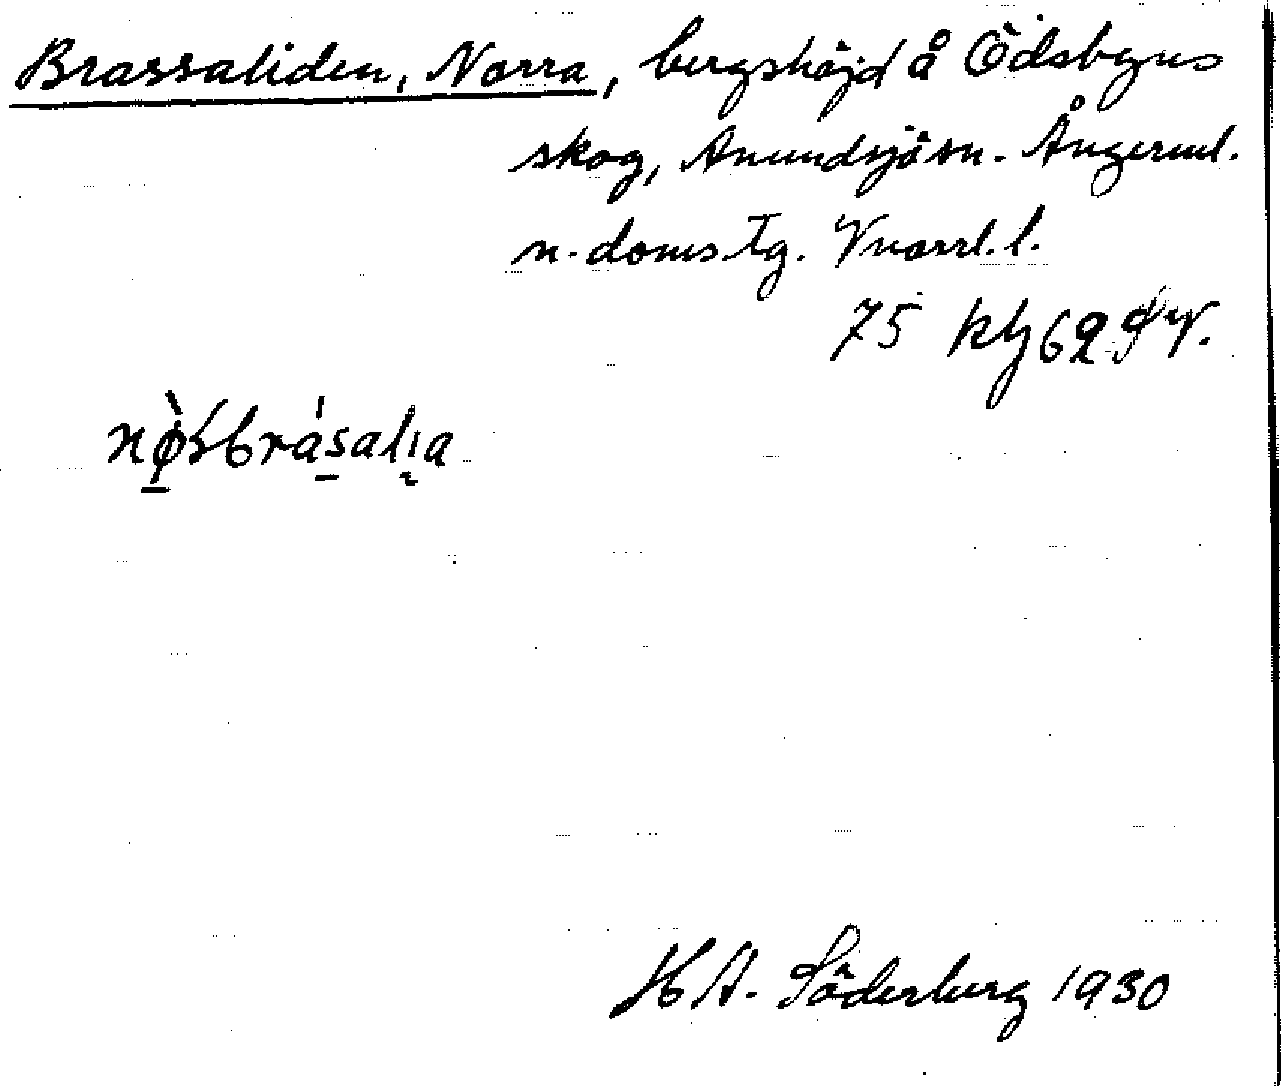 Brassaliden, Norra, bergshöjd å Ödsbyns
skog, Anundsjö sn. Ångerml.
n. doms. tg. Vnorrl. l.
75 kbj 62 SV.
nø̀ʂbrásalıa
H A. Söderberg 1930